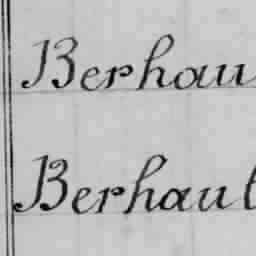 Berhau
Berhaut